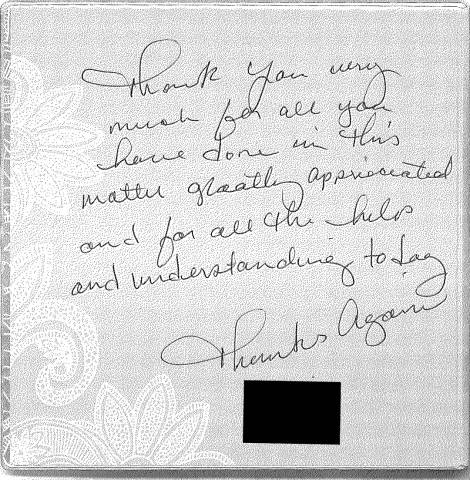 Thank you very
much for all you
have done in this
matter greatly appriciated
and for all the help
and understanding today
Thanks Again